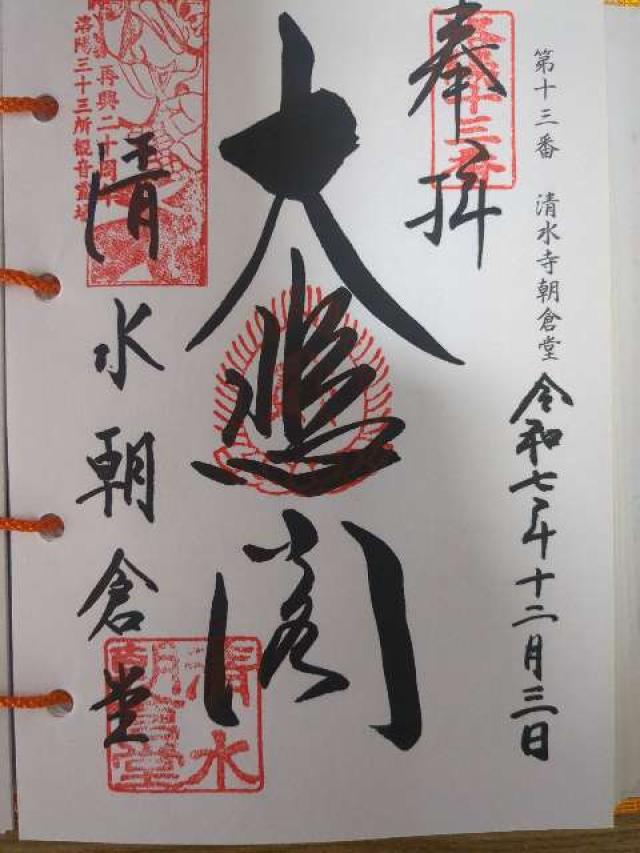 第十三番 清水寺朝倉堂
令和七年十二月三日
奉拝
洛陽十三番
大悲閣
再興二十周年
洛陽三十三所観音霊場
清水朝倉堂
清水
朝倉堂